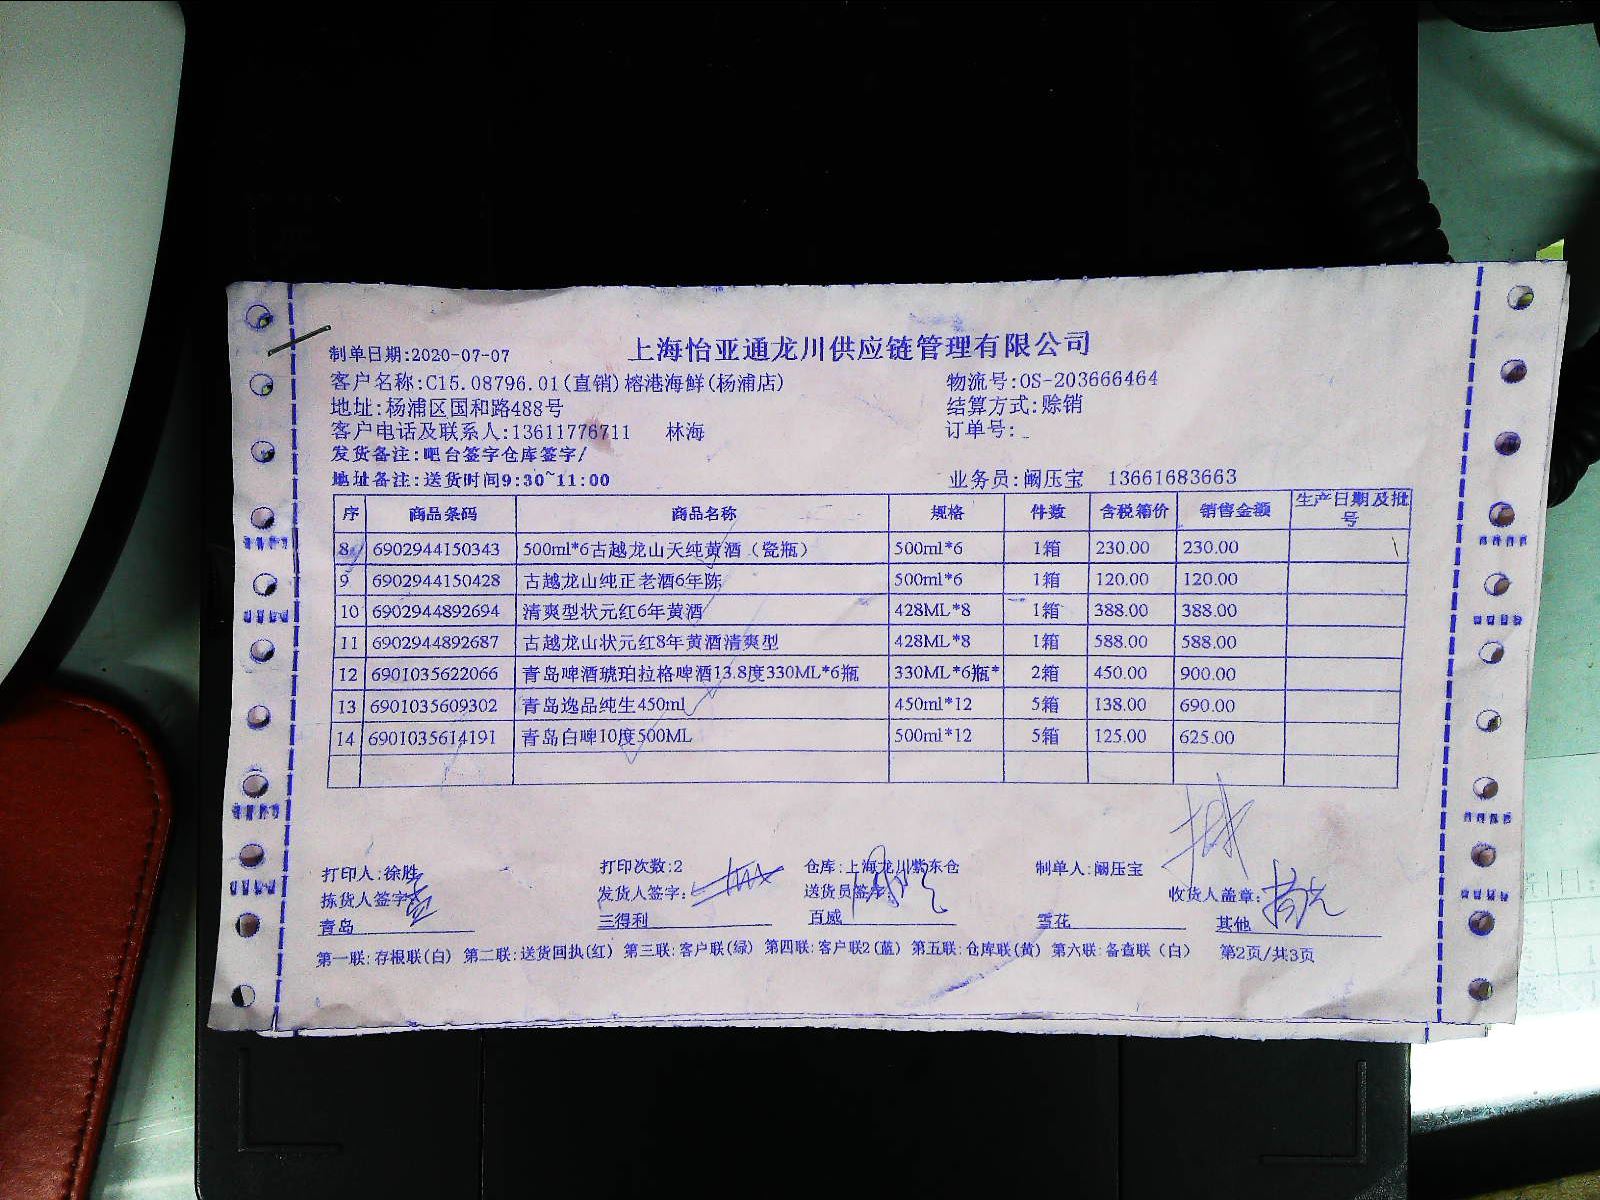 上海怡亚通龙川供应链管理有限公司
制单日期:2020-07-07
客户名称:C15.08796.01(直销)榕港海鲜(杨浦店) 物流号:OS-203666464
地址:杨浦区国和路488号 结算方式:赊销
客户电话及联系人:13611776711 林海 订单号:_
发货备注:吧台签字仓库签字/
地址备注:送货时间9:30~11:00 业务员:阚压宝 13661683663
序 商品条码 商品名称 规格 件数 含税箱价 销售金额 生产日期及批号
8 6902944150343 500ml*6古越龙山天纯黄酒（瓷瓶） 500ml*6 1箱 230.00 230.00
9 6902944150428 古越龙山纯正老酒6年陈 500ml*6 1箱 120.00 120.00
10 6902944892694 清爽型状元红6年黄酒 428ML*8 1箱 388.00 388.00
11 6902944892687 古越龙山状元红8年黄酒清爽型 428ML*8 1箱 588.00 588.00
12 6901035622066 青岛啤酒琥珀拉格啤酒13.8度330ML*6瓶 330ML*6瓶* 2箱 450.00 900.00
13 6901035609302 青岛逸品纯生450ml 450ml*12 5箱 138.00 690.00
14 6901035614191 青岛白啤10度500ML 500ml*12 5箱 125.00 625.00
打印人:徐胜 打印次数:2 仓库:上海龙川紫东仓 制单人:阚压宝
拣货人签字: 发货人签字: 送货员签字: 收货人盖章:
青岛 三得利 百威 雪花 其他
第一联:存根联(白) 第二联:送货回执(红) 第三联:客户联(绿) 第四联:客户联2(蓝) 第五联:仓库联(黄) 第六联:备查联（白） 第2页/共3页